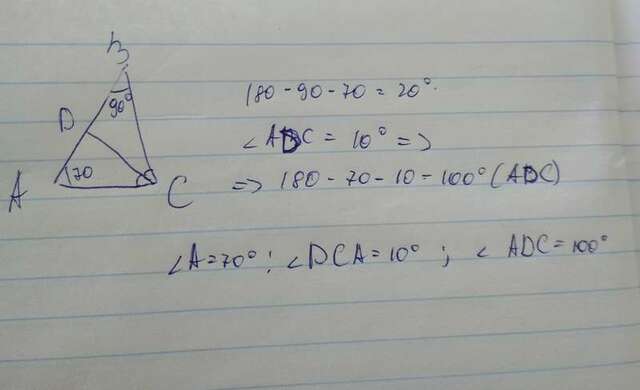 B
90°
D
70
A
C
180 - 90 - 70 = 20°.
∠ADC = 10° =>
=> 180 - 70 - 10 = 100° (ADC)
∠A = 70° ; ∠DCA = 10° ; ∠ADC = 100°